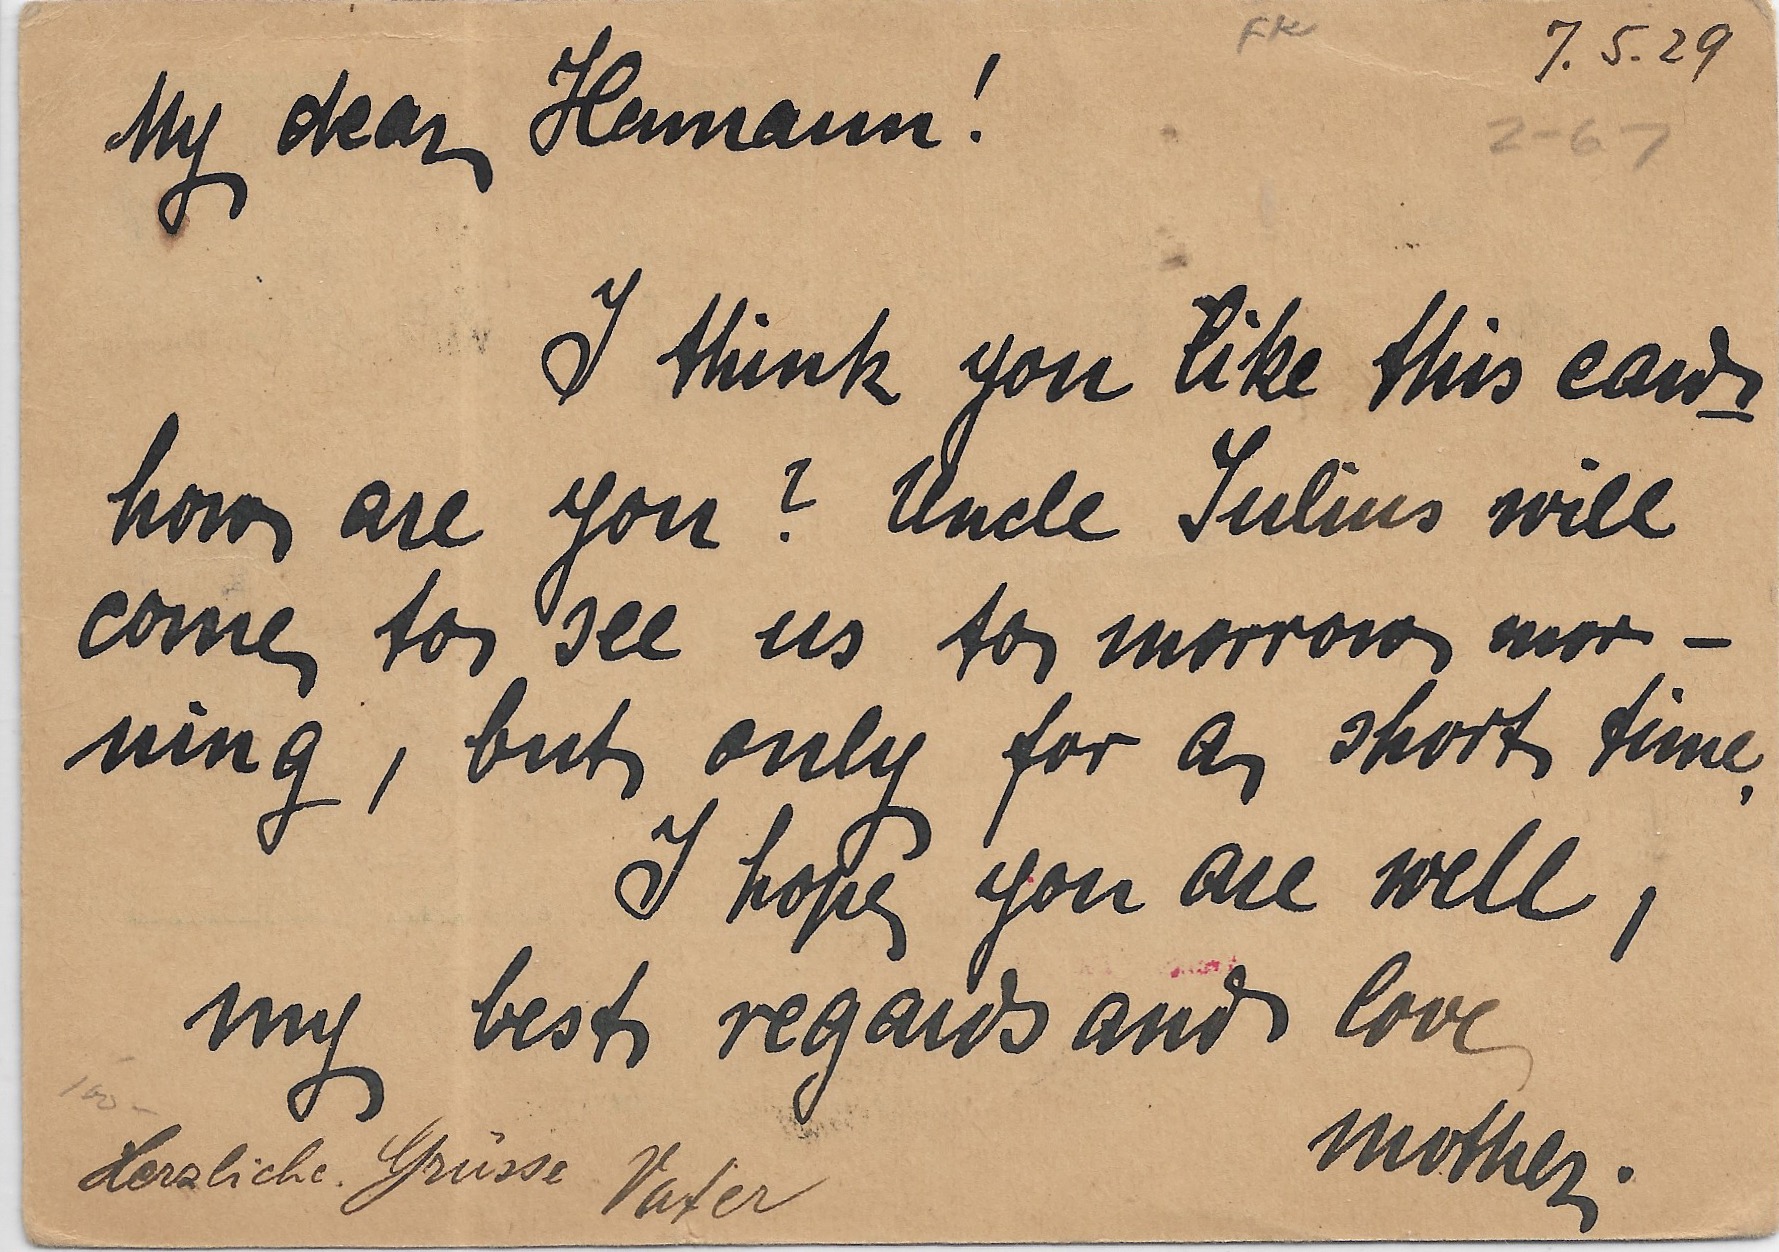 FK
7. 5. 29
2-67
My dear Hermann!
I think you like this card
how are you? Uncle Julius will
come to see us to morrow mor -
ning, but only for a short time.
I hope you are well,
my best regards and love
mother.
100-
Herzliche. Grüsse Vater